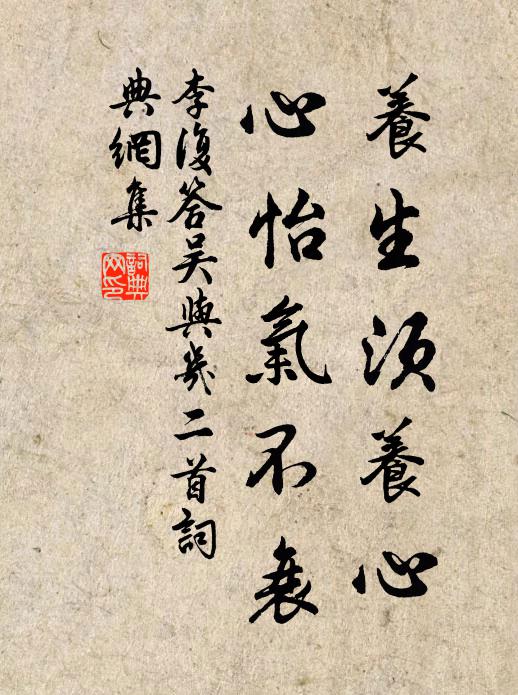 養生須養心
心怡氣不衰
李復答吴與幾二首詞
典網集
詞典網印